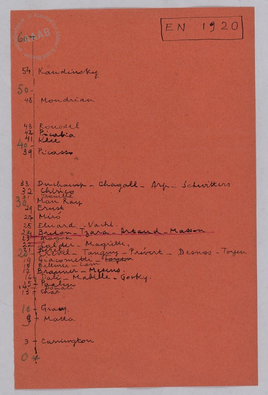 EN 1920
60
54 Kandinsky
50
48 Mondrian
43 Rouault
42 Picabia
41 Klee
40
39 Picasso
33 Duchamp - Chagall - Arp - Schwitters
32 Chirico
30 Man Ray
29 Ernst
27 Miró
25 Eluard - Vaché
24 Breton - Tzara - Artaud - Masson
Calder - Magritte
20 Crevel - Tanguy - Prévert - Desnos - Toyen
Giacometti
Bellmer - Lam
Brauner -
Dali - Matta - Gorky
Char
10 Gracq
9 Matta
3 Carrington
0